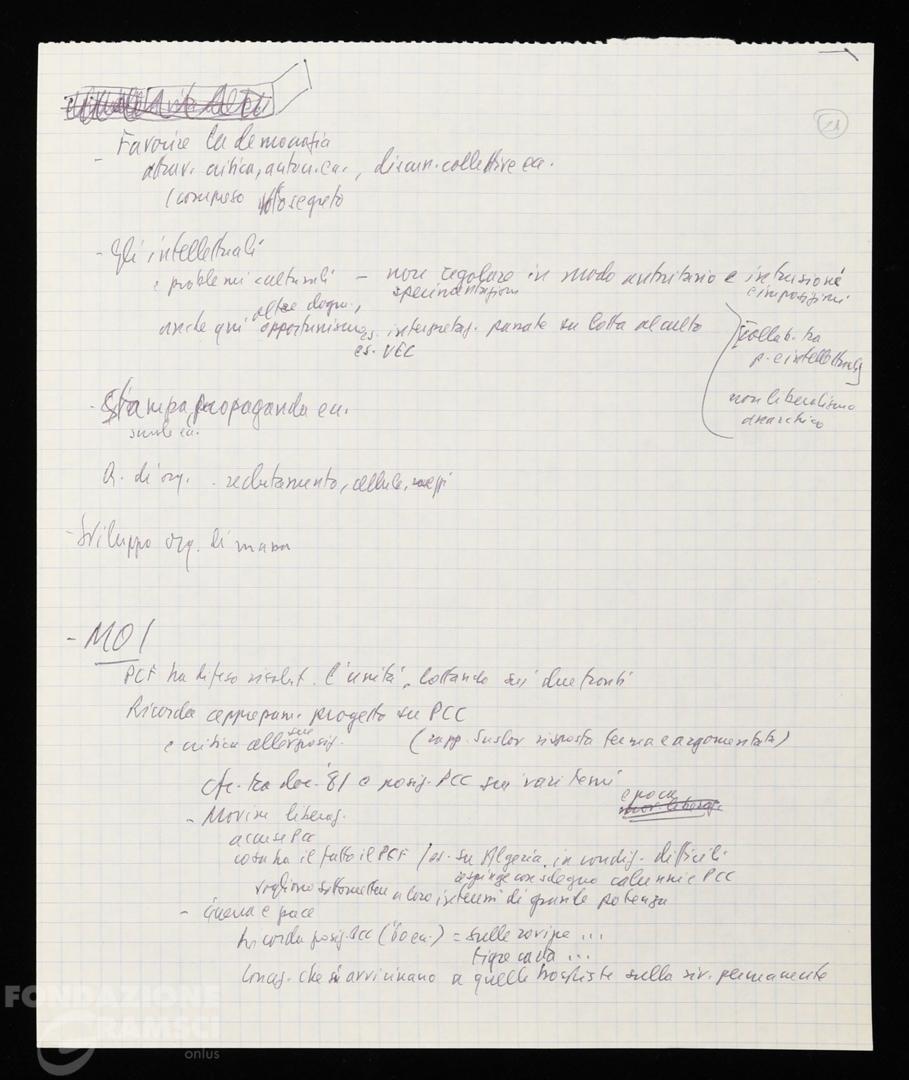 21
- Favorire la democrazia
attrav. critica, autocr. ecc., discuss. collettive ecc.
(compreso voto segreto
- Gli intellettuali
e problemi culturali - non regolare in modo autoritario e intrusioni
e imposizioni
sperimentazioni
oltre dogm.,
anche qui opportunismo, es. interpretaz. passate su lotta al culto
es. VEC
collab. tra
p. e intellettuali
non liberalismo
anarchico
- Stampa, propaganda ecc.
scuole ecc.
Q. di org. - reclutamento, cellule,
- Sviluppo org. di massa
- MOI
PCF ha difeso risolut. l'unità, lottando sui due fronti
Ricorda apprezzam. progetto su PCC
e critica alle sue posiz. (rapp. Suslov risposta ferma e argomentata)
cfr. tra doc. '81 e posiz. PCC su vari temi
epoca
- Movim. liberaz.
accuse PCC
cosa ha fatto il PCF / es. su Algeria, in condiz. difficili
respinge con sdegno calunnie PCC
vogliono sottomettere a loro interessi di grande potenza
- Guerra e pace
Ricorda posiz. PCC ('60 ecc.) = sulle rovine ...
tigre carta ...
Concez. che si avvicinano a quelle trotskiste sulla riv. permanente
FONDAZIONE
GRAMSCI
onlus